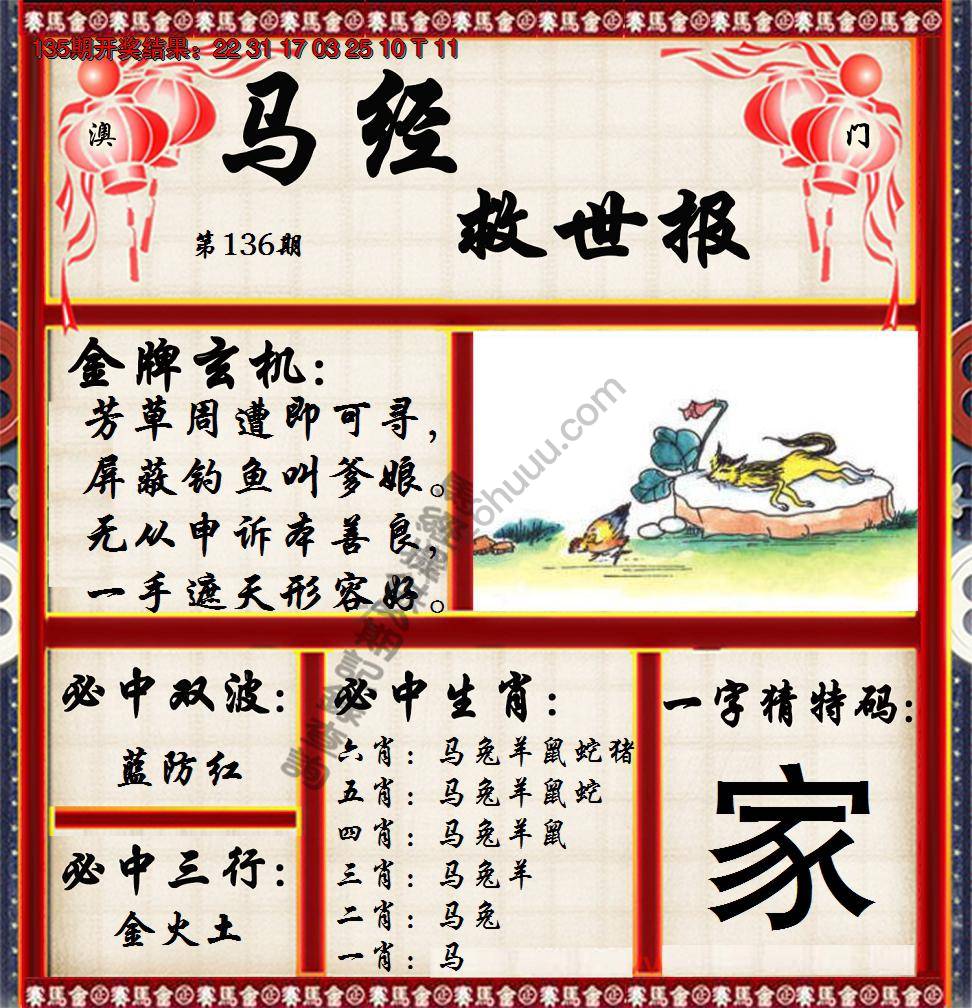 135期开奖结果：22 31 17 03 25 10 T 11
澳
门
马经
救世报
第136期
金牌玄机：
芳草周遭即可寻，
屏蔽钓鱼叫爹娘。
无从申诉本善良，
一手遮天形容好。
必中双波：
蓝防红
必中三行：
金火土
必中生肖：
六肖：马兔羊鼠蛇猪
五肖：马兔羊鼠蛇
四肖：马兔羊鼠
三肖：马兔羊
二肖：马兔
一肖：马
一字猜特码：
家